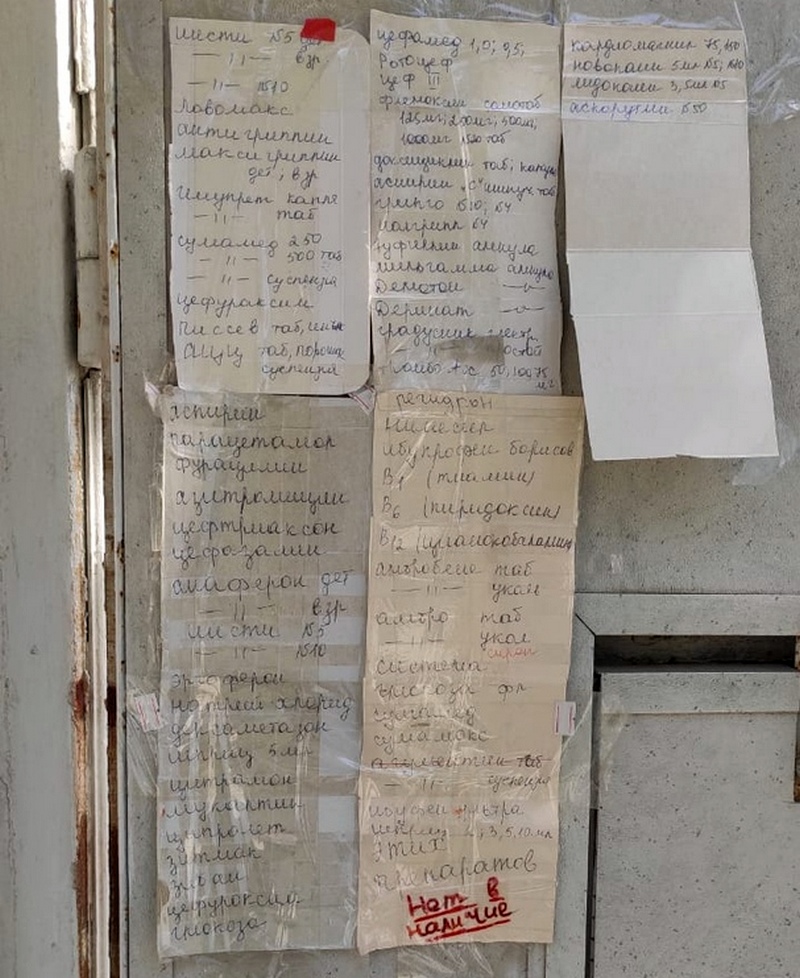 шести №5 дет
— 11 — взр.
— 11 — №10
Ловомакс
антигриппин
максигриппин
дет, взр
Имупрет капли
— 11 — таб
сумамед 250
— 11 — 500 таб
— 11 — суспензия
цефуроксим
таб, порошк
суспенция
цефамед 1,0; 0,5;
Ротоцеф
цеф III
флемоксин солютаб
125мг; 250мг; 500мг;
1000мг №20 таб
доксициклин таб; капсул
аспирин "С" шипуч. таб
гринго №10; №4
колгрипп №4
мильгамма ампула
Деринат —"—
градусник электр.
50, 100, 75
мг
кардиомагнил 75, 150
новокаин 5мл №5; №10
лидокаин 3,5мл №5
аскорутин №50
аспирин
парацетамол
фурацилин
азитромицин
цефтриаксон
цефазолин
анаферон дет
— 11 — взр
шести №5
— 11 — №10
эргоферон
натрий хлорид
дексаметазон
шприц 5мл
цитрамон
мукалтин
ципролет
зитмак
цефуроксид
глюкоза
регидрон
нимесил
ибупрофен борисов
В1 (тиамин)
В6 (пиридоксин)
В12 (цианокобаламин)
амбробене таб
— 11 — укол
амбро таб
— 11 — укол
сироп
система
глюкоза фл
сумамед
сумамокс
аугментин таб
— 11 — суспензия
ибуфен ультра
шприц 2, 3, 5, 10 мл
этих
препаратов
Нет в
наличие